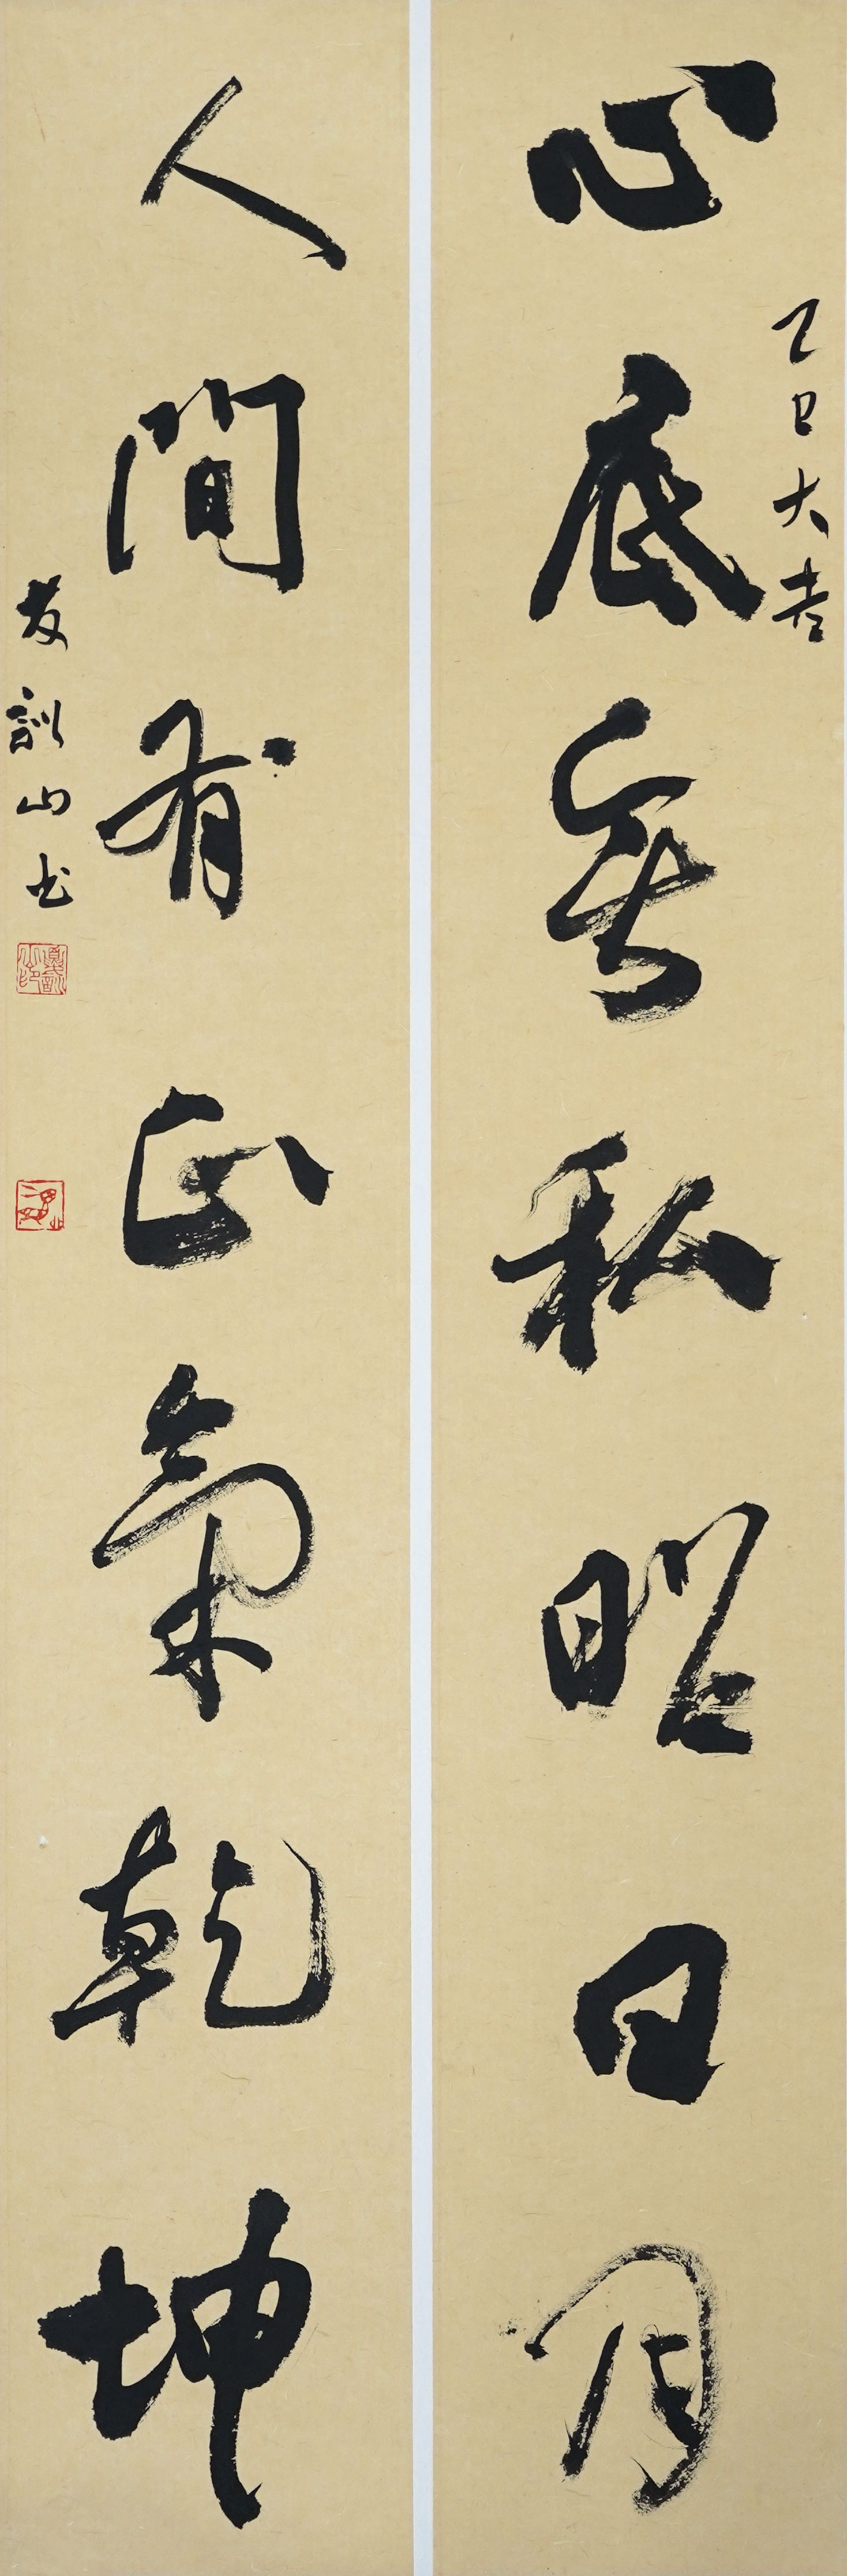 乙巳大
心底無私昭日月
人間有正氣乾坤
夏訓山书